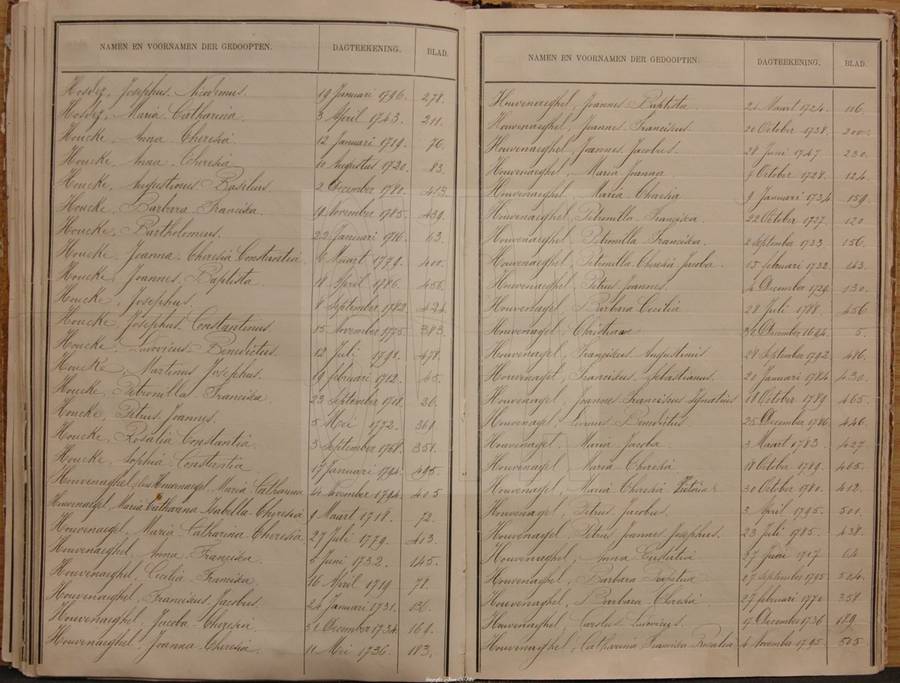 NAMEN EN VOORNAMEN DER GEDOOPTEN. DAGTEEKENING. BLAD.
Hosdez, Josephus Nicolinus. 19 Januari 1736. 278.
Hosdez, Maria Catharina 3 April 1743. 211.
Houcke, Anna Cheresia 12 Januari 1719. 76.
Houcke, Anna Cheresia 10 Augustus 1720. 83.
Houcke, Augustinus Basilius. 2 December 1780. 413.
Houcke, Barbara Francisca. 19 November 1785. 439.
Houcke, Bartholomeus. 22 Januari 1716. 63.
Houcke, Joanna Cheresia Constantia 6 Maart 1779. 400.
Houcke, Joannes Baptista. April 1786. 456.
Houcke, Josephus. 8 September 1782. 424.
Houcke, Josephus Constantinus. 15 November 1775. 383.
Houcke, Ludovicus Benedictus. 12 Juli 1791. 478.
Houcke, Martinus Josephus. 19 februari 1712. 45.
Houcke, Petronilla Francisca. 23 September 36.
Houcke, Petrus Joannes. 5 Mei 1772. 361.
Houcke, Rosalia Constantia. 3 September 1768. 351.
Houcke, Sophia Constantia. 17 Januari 1794. 495.
Houvenaeghel, Houvenaegel, Maria Catharina November 1744 405
Houvenaegel, Maria Catharina Isabella Cheresia 9 Maart 1718. 72.
Houvenaegel, Maria Catharina Cheresia 27 Juli 1779. 403.
Houvenaeghel, Anna Francisca. Juni 1732. 145.
Houvenaeghel, Cecilia Francisca. 16 April 1719 78.
Houvenaeghel, Franciscus Jacobus. 24 Januari 1731. 136.
Houvenaeghel, Jacoba Cheresia. 31 December 1734 161.
Houvenaeghel, Joanna Cheresia. 11 Mei 1736. 183.
NAMEN EN VOORNAMEN DER GEDOOPTEN. DAGTEEKENING. BLAD.
Houvenaeghel, Joannes Baptista. Maart 1724. 116.
Houvenaeghel, Joannes Franciscus. 20 October 1738. 200.
Houvenaeghel, Joannes Jacobus. 28 Juni 1747. 230.
Houvenaeghel, Maria Joanna. 7 October 1728. 124.
Houvenaeghel, Maria Cheresia 9 Januari 1734. 159.
Houvenaeghel, Petronilla Francisca. 22 October 1727. 120
Houvenaeghel, Petronilla Francisca. 2 September 1733 156.
Houvenaeghel, Petronilla Cheresia Jacoba. 15 februari 1732. 143.
Houvenaeghel, Petrus Joannes. December 1729. 130.
Houvenagel, Barbara Cecilia 28 Juli 1788. 456
Houvenagel, Christiaan 31 December 1644. 5.
Houvenagel, Franciscus Augustinus 28 September 1792. 486.
Houvenagel, Franciscus Sebastianus. 20 Januari 1784. 430.
Houvenagel, Joannes Franciscus Ignatius 18 October 1789. 465.
Houvenagel, Livinus Benedictus 25 December 1786. 446.
Houvenagel, Maria Jacoba. 3 Maart 1783. 427
Houvenagel, Maria Cheresia. 18 October 1789. 465.
Houvenagel, Maria Cheresia Victoria 30 October 1780. 412.
Houvenagel, Petrus Jacobus. 3 April 1795. 501.
Houvenagel, Petrus Joannes Josephus. 23 Juli 1785. 438.
Houvenaghel, Anna Eustatia. 27 Juni 1717. 64
Houvenaghel, Barbara 27 September 1795. 504.
Houvenaghel, Barbara Cheresia 27 februari 1770. 358.
Houvenaghel, Carolus Ludovicus. 17 December 1736 189.
Houvenaghel, Catharina Francisca Rosalia 4 November 1795. 505